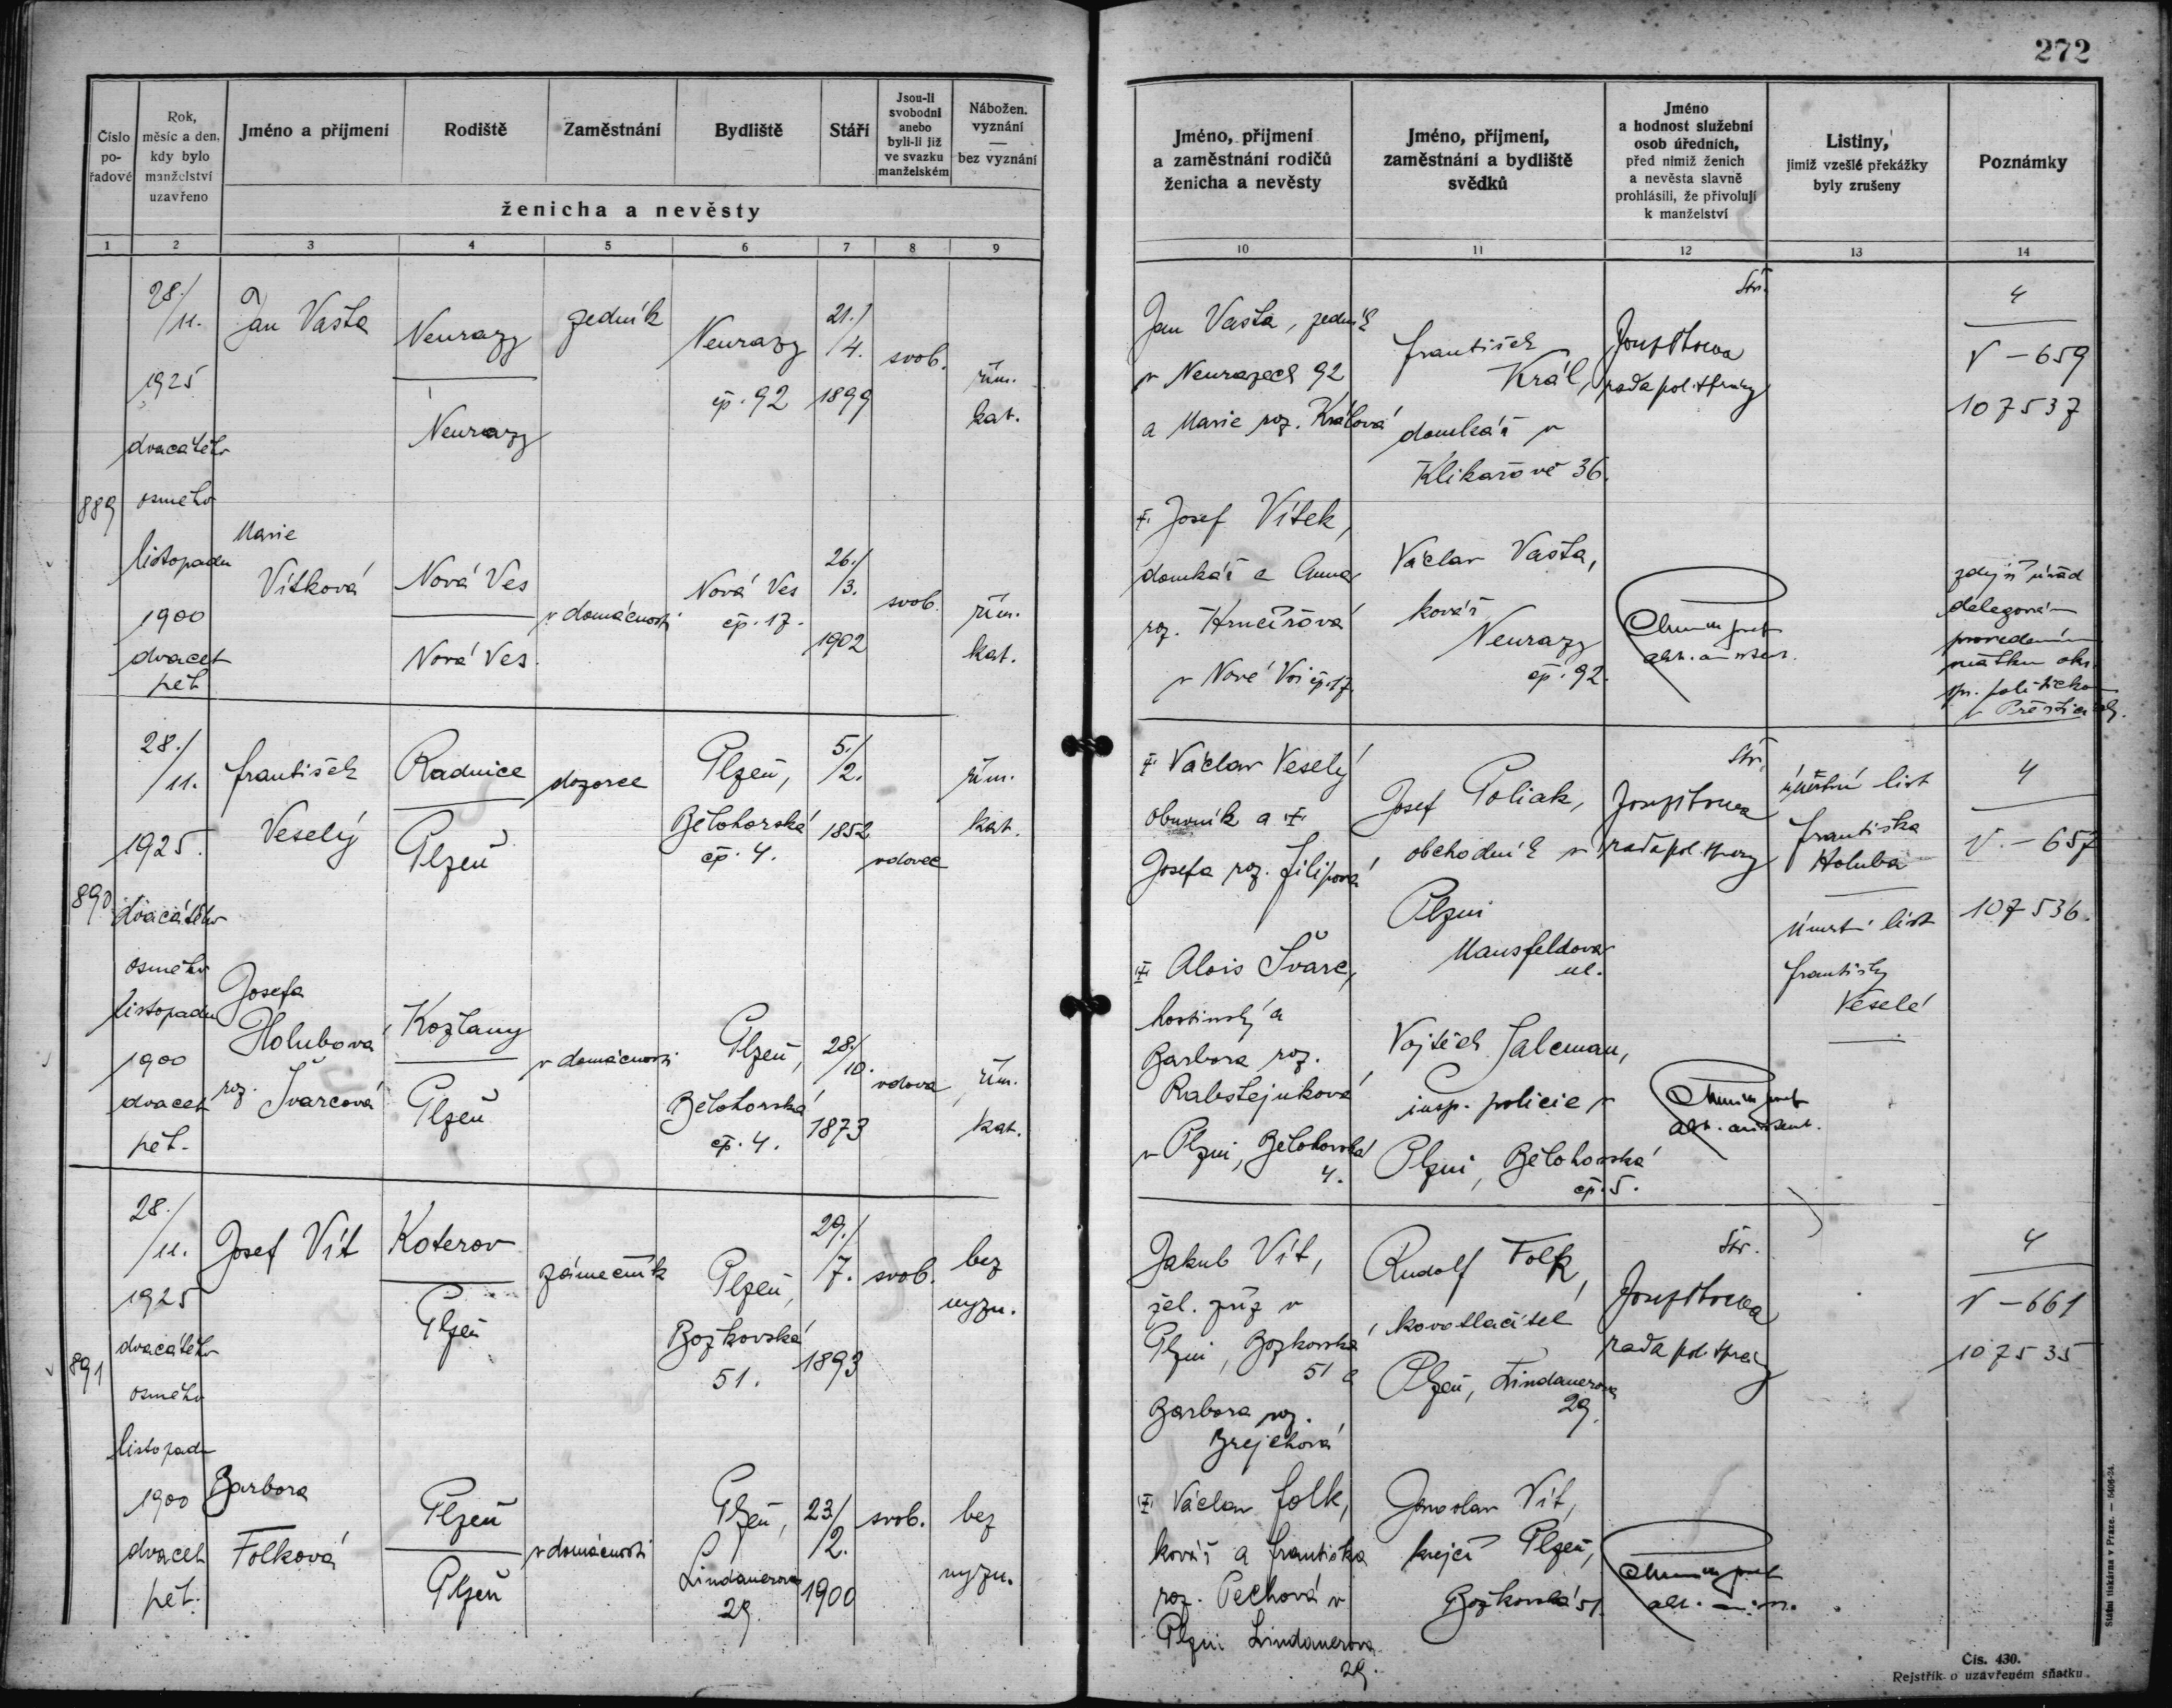 272
Číslo po-řadové
Rok, měsíc a den, kdy bylo manželství uzavřeno
Jméno a příjmení
Rodiště
Zaměstnání
Bydliště
Stáří
Jsou-li svobodni anebo byli-li již ve svazku manželském
Nábožen. vyznání — bez vyznání
ženicha a nevěsty
1 2 3 4 5 6 7 8 9
Jméno, příjmení a zaměstnání rodičů ženicha a nevěsty
Jméno, příjmení, zaměstnání a bydliště svědků
Jméno a hodnost služební osob úředních, před nimiž ženich a nevěsta slavně prohlásili, že přivolují k manželství
Listiny, jimiž vzešlé překážky byly zrušeny
Poznámky
10 11 12 13 14
889
28./11.
1925
dvacátého
osmého
listopadu
1900
dvacet
pět
Jan Vašta
Neurazy
Neurazy
zedník
Neurazy
čp. 92
21./4.
1899
svob.
řím.
kat.
Marie
Vítková
Nová Ves
Nová Ves
v domácnosti
Nová Ves
čp. 17.
26./3.
1902
svob.
řím.
kat.
Jan Vašta, zedník
v Neurazech 92
a Marie roz. Králová
Josef Vítek,
domkář a Anna
roz. Hrnčířová
v Nové Vsi čp. 17
František
Král,
domkář v
Klikařově 36.
Václav Vašta,
kovář
Neurazy
čp. 92.
Str.
rada pol. správy
4
V – 659
107537
zdejší úřad
delegován
provedením
sňatku okr.
spr. politickou
v Přešticích.
890
28./11.
1925.
dvacátého
osmého
listopadu
1900
dvacet
pět.
František
Veselý
Radnice
Plzeň
dozorce
Plzeň,
Bělohorská
čp. 4.
5./2.
1852
vdovec
řím.
kat.
Josefa
Holubová
roz. Švarcová
Kozlany
Plzeň
v domácnosti
Plzeň,
Bělohorská
čp. 4.
28./10.
1873
vdova
řím.
kat.
Václav Veselý
obuvník a
Josefa roz. Filipová
Alois Švarc,
hostinský a
Barbora roz.
Rabštejnková
v Plzni, Bělohorská
4.
Josef Poliak,
obchodník v
Plzni
Mansfeldova
ul.
Vojtěch Salcman,
insp. policie v
Plzni, Bělohorská
čp. 5.
Str.
rada pol. správy
úmrtní list
Františka
Holuba
Úmrtní list
Františky
Veselé
4
V. – 657
107536.
891
28./11.
1925
dvacátého
osmého
listopadu
1900
dvacet
pět.
Josef Vít
Koterov
Plzeň
zámečník
Plzeň,
Božkovská
51.
29./7.
1893
svob.
bez
vyzn.
Barbora
Folková
Plzeň
Plzeň
v domácnosti
Plzeň,
Lindauerova
29.
23/2.
1900
svob.
bez
vyzn.
Jakub Vít,
žel. zříz v
Plzni, Božkovská
51 a
Barbora roz.
Brejchová
Václav Folk,
kovář a Františka
roz. Pechová v
Plzni Lindauerova
29.
Rudolf Folk,
kovotlačitel
Plzeň, Lindauerova
29.
Jaroslav Vít,
krejčí Plzeň,
Božkovská 51.
Str.
rada pol. správy
4
V – 661
107535
Státní tiskárna v Praze. — 5406-24.
Čís. 430.
Rejstřík o uzavřeném sňatku.